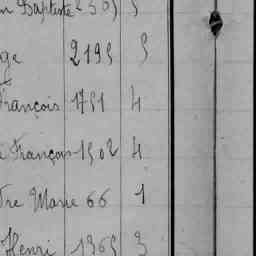 n Baptiste 2505 5
ge 2195 5
François 1751 4
François 1502 4
tre Marie 66 1
Henri 1365 3